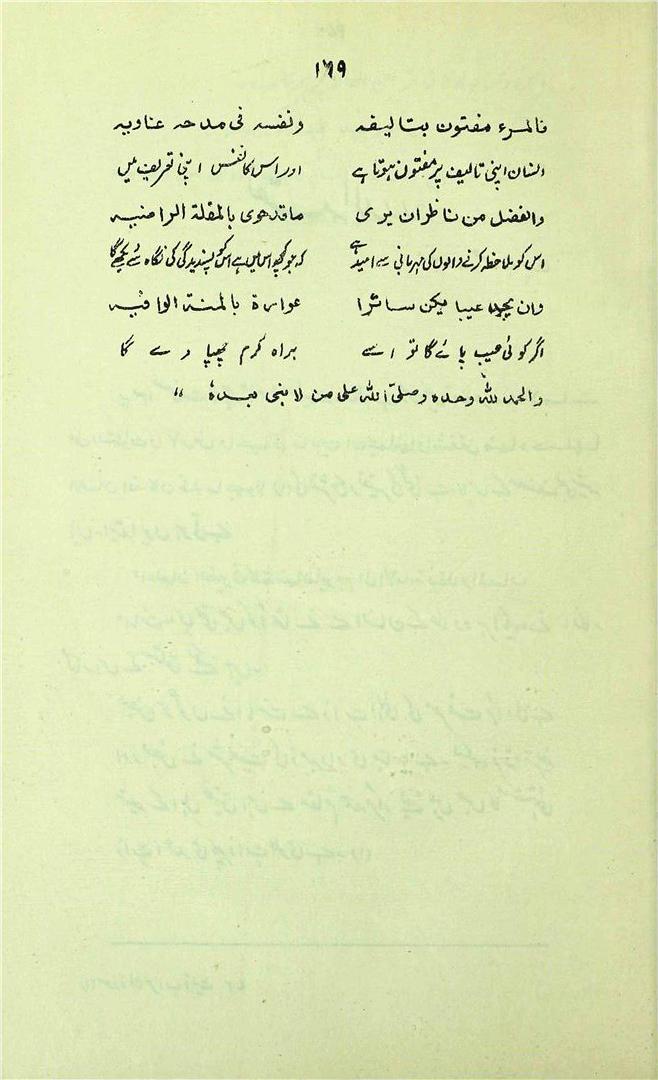 ۱۶۹
فالمرء مفتون بتالیفہ ونفسہ فی مدحہ عناویہ
انسان اپنی تالیف پر مفتون ہوتا ہے اور اس کا نفس اپنی تعریف میں
والفضل من ناظر ان یری ماقد حوی بالمقلة الراضیہ
اس کو ملاحظہ کرنے والوں کی مہربانی سے امید ہے کہ جو کچھ اس میں ہے اس کو پسندیدگی کی نگاہ سے دیکھے گا
وان یجد عیبا یکن ساترا عوارة بالمنة الوافیہ
اگر کوئی عیب پائے گا تو اسے براہ کرم چھپا دے گا
والحمد للہ وحدہ وصلی اللہ علی من لا نبی بعدہٗ "